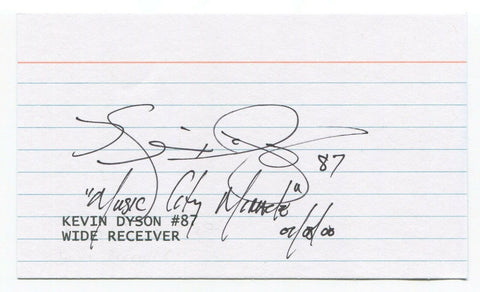 Kevin Dyson 87
"Music City Miracle"
KEVIN DYSON #87
WIDE RECEIVER
01/08/00